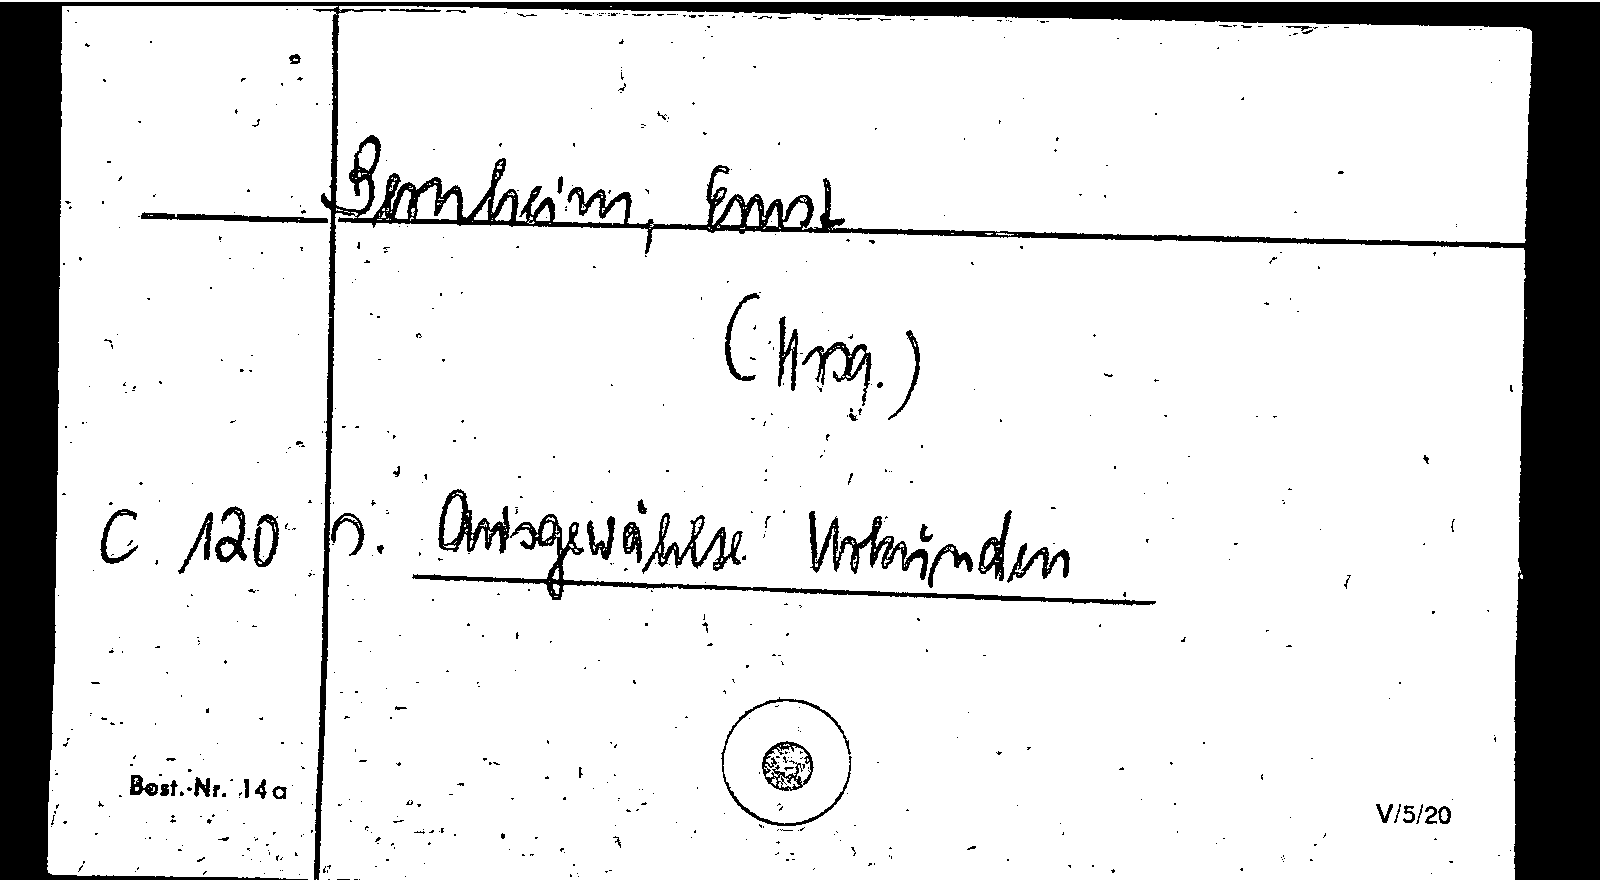 Bernheim, Ernst
(Hrsg.)
C 120 s. Ausgewählte Urkunden
Best.-Nr. 14a
V/5/20